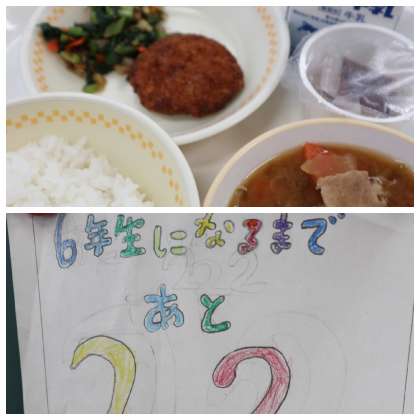 牛乳
6年生になるまで
あと
22